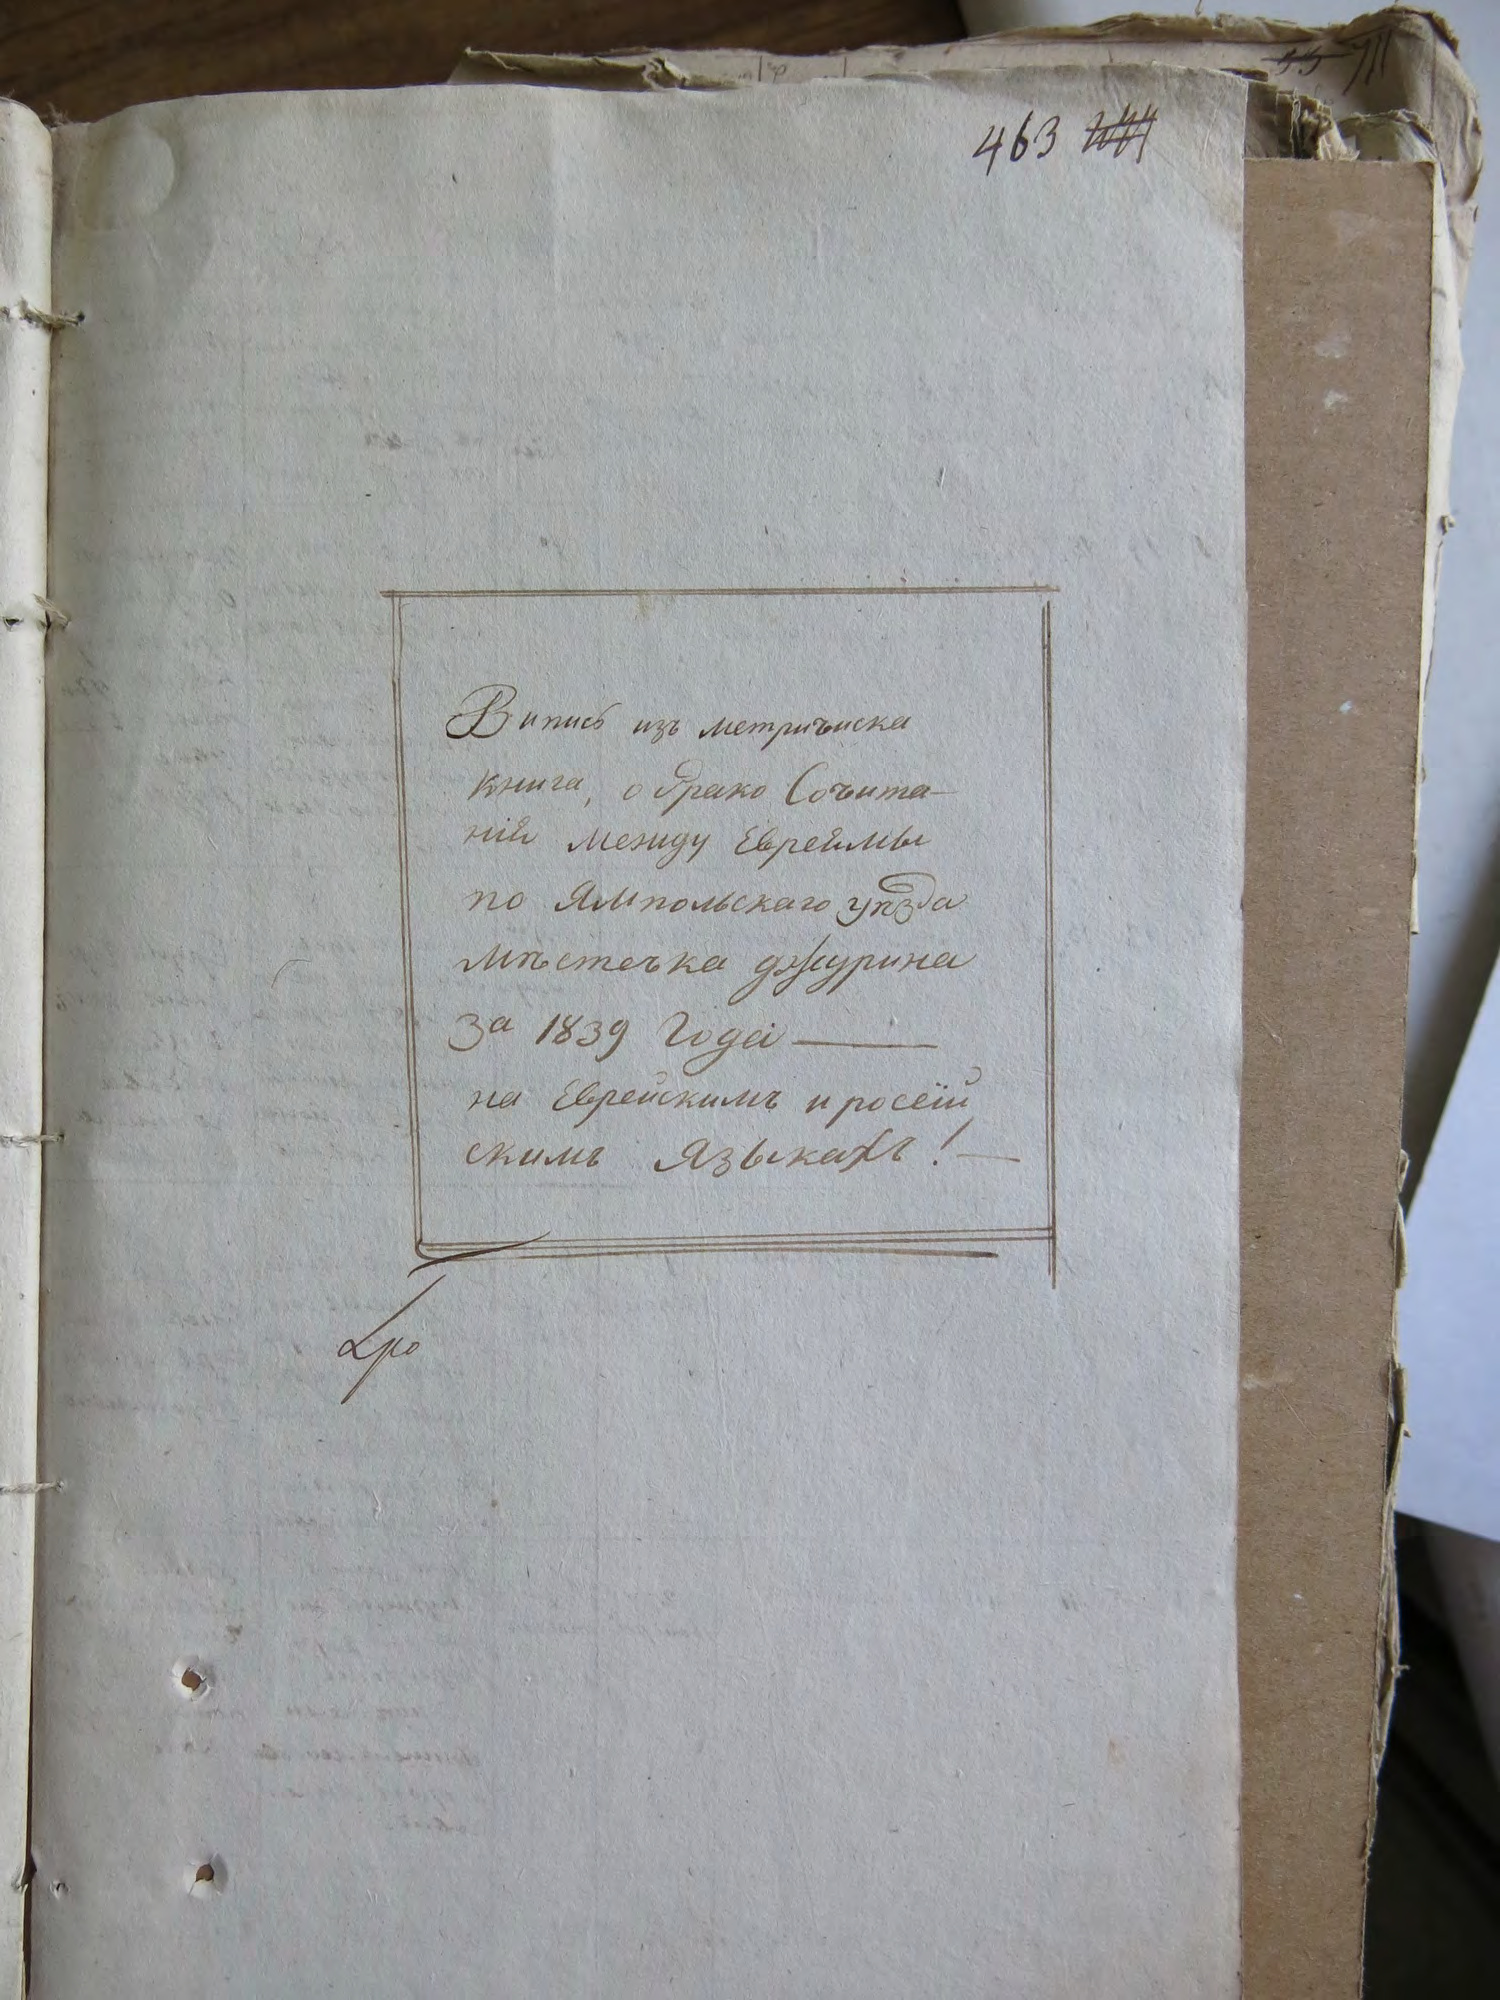 463
Випись изъ метричиска
книга, о брако Сочита-
ній между Евреймы
по Ямпольскаго уѣзда
мѣстечка джурина
за 1839 Года —
на Еврейскимъ и росеій
скимъ языкахъ! —